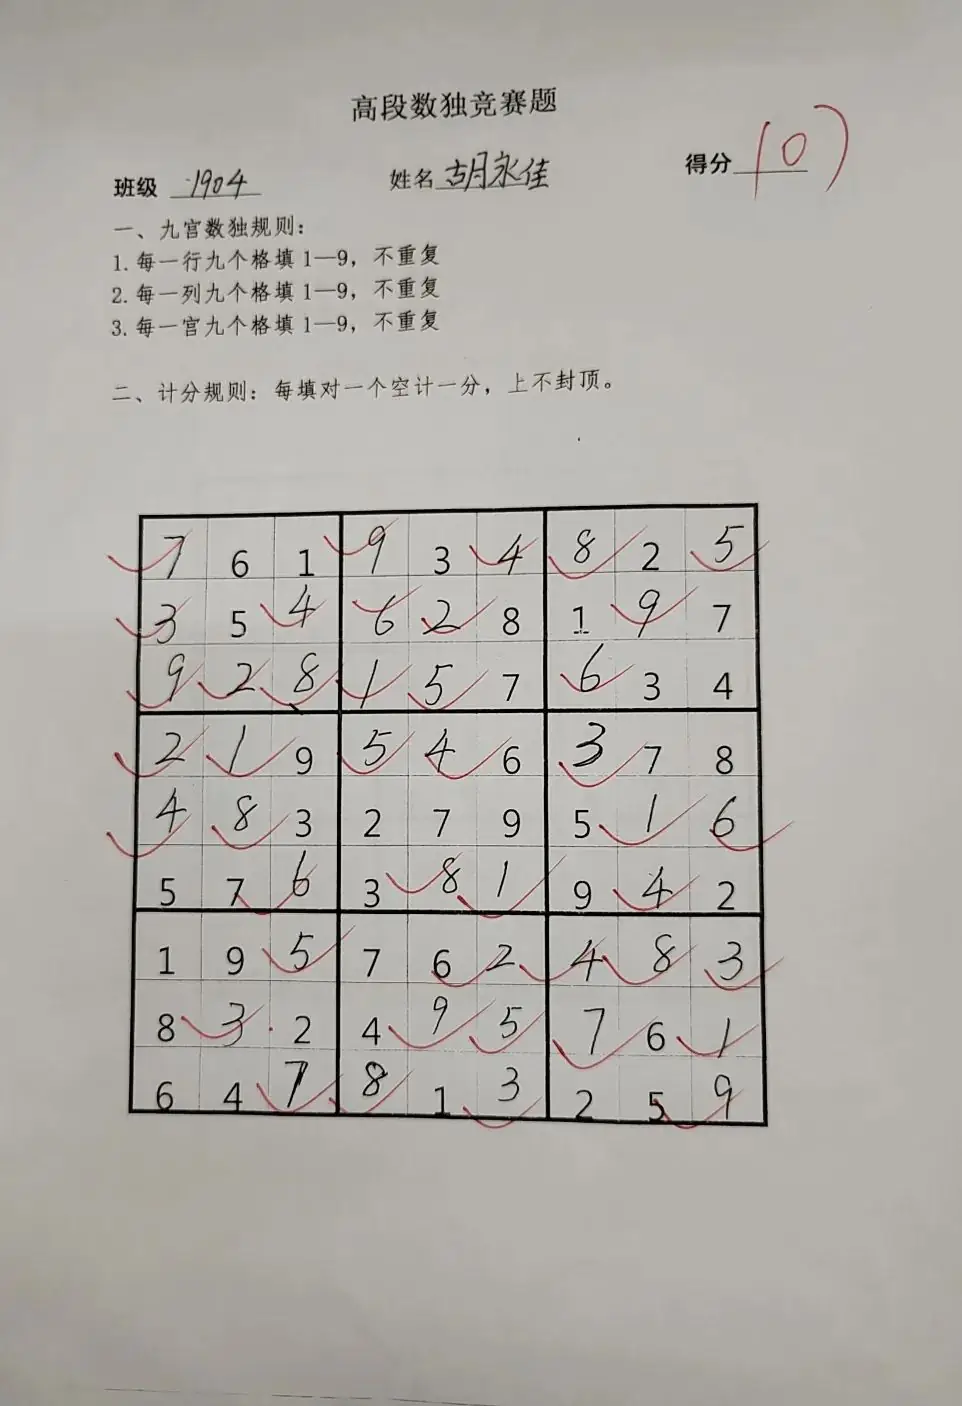 高段数独竞赛题
班级 1904 姓名 胡永佳 得分 (0)
一、九宫数独规则:
1.每一行九个格填1—9,不重复
2.每一列九个格填1—9,不重复
3.每一宫九个格填1—9,不重复
二、计分规则:每填对一个空计一分,上不封顶。
7 6 1 9 3 4 8 2 5
3 5 4 6 2 8 1 9 7
9 2 8 1 5 7 6 3 4
2 1 9 5 4 6 3 7 8
4 8 3 2 7 9 5 1 6
5 7 6 3 8 1 9 4 2
1 9 5 7 6 2 4 8 3
8 3 2 4 9 5 7 6 1
6 4 7 8 1 3 2 5 9